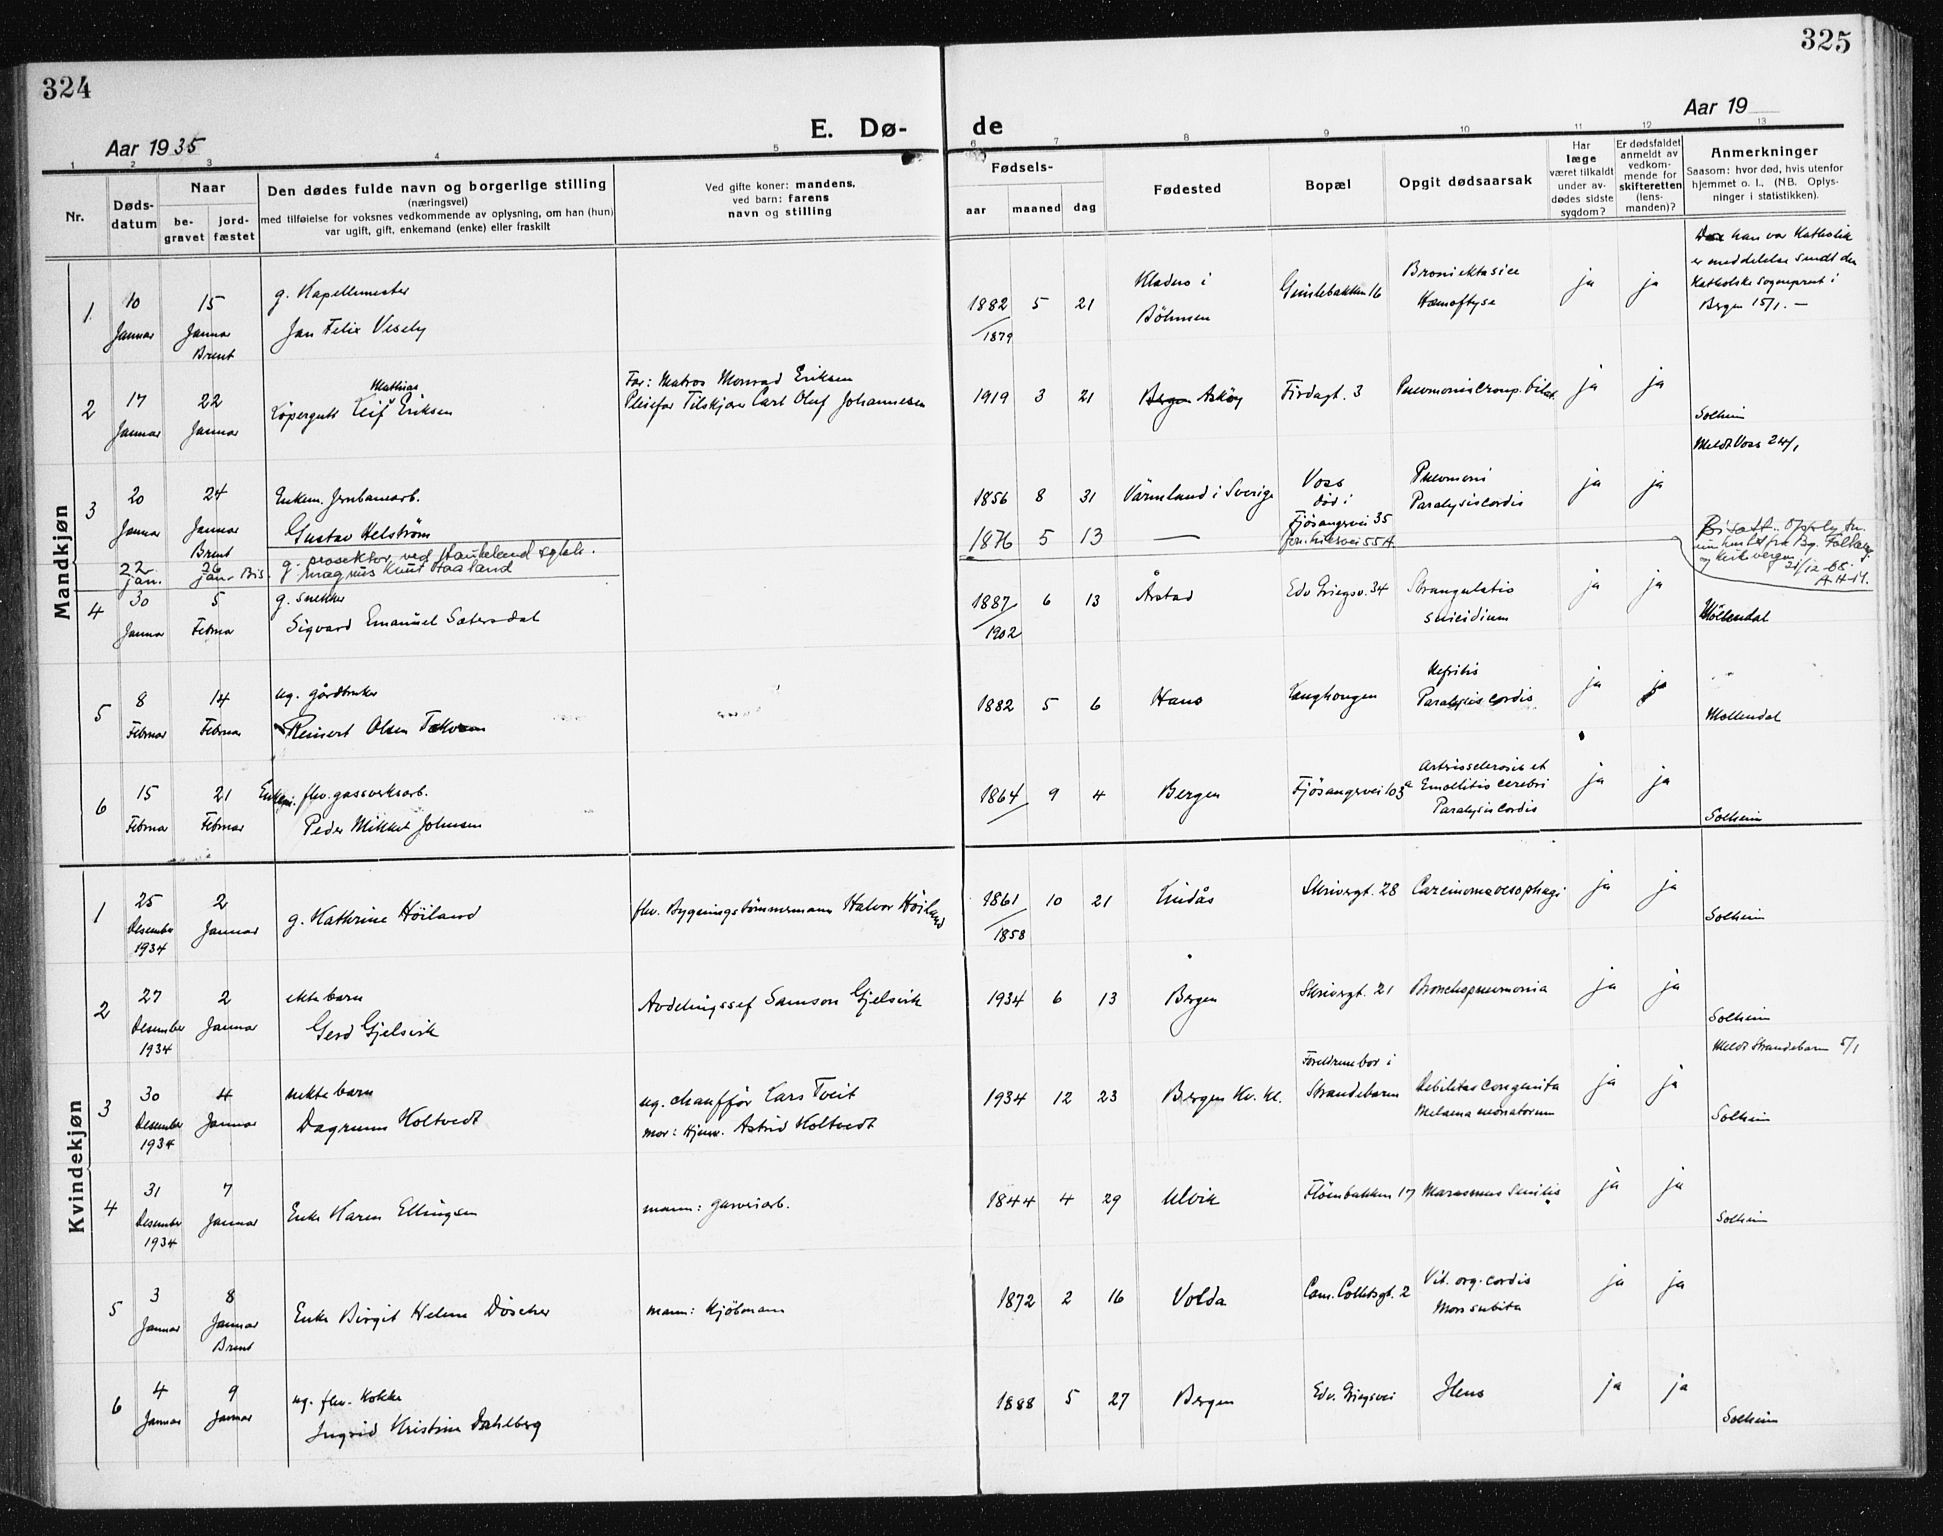 324
325
Aar 1935
E. Dø-
de
Aar 19
1 2 3 4 5 6 7 8 9 10 11 12 13
Nr.
Døds-
datum
Naar
be-
gravet
jord-
fæstet
Den dødes fulde navn og borgerlige stilling
(næringsvei)
med tilføielse for voksnes vedkommende av oplysning, om han (hun)
var ugift, gift, enkemand (enke) eller fraskilt
Ved gifte koner: mandens,
ved barn: farens
navn og stilling
Fødsels-
aar maaned dag
Fødested
Bopæl
Opgit dødsaarsak
Har
læge
været tilkaldt
under av-
dødes sidste
sygdom?
Er dødsfaldet
anmeldt av
vedkom-
mende for
skifteretten
(lens-
manden)?
Anmerkninger
Saasom: hvor død, hvis utenfor
hjemmet o. l., (NB. Oplys-
ninger i statistikken).
Mandkjøn
1
10
Januar
15
Januar
Brent
g. Kapellmester
Jan Felix Vesely
1882 5 21
1879
Kladno i
Böhmen
16
Hæmoftyse
ja ja
han var Katholik
er meddelelse sendt den
Katholske sogneprest i
Bergen 15/1. —
2
17
Januar
22
Januar
Mathias
Løpergutt Leif Eriksen
Far: Matros Monrad Eriksen
Pleiefar Tilskjærer Carl Oluf Johannesen
1919 3 21
Bergen Askøy
Firdagt. 3
Pneumonia croup. bilat.
ja ja
Solheim
3
20
Januar
24
Januar
Brent
Enkem. Jernbanearb.
Gustav Helström
1856 8 31
Värmland i Sverige
Voss
død i
Fjösangervei 35
Pneumoni
Paralysis cordis
ja ja
Meldt Voss 24/1
22
jan.
26
jan - Bis.
g. prosektor ved Haukeland sykh.
Magnus Knut Haaland
1876 5 13
—
55A
Bisatt.
21/12-68.
A.H-M.
4
30
Januar
5
Februar
g. snekker
Sigvard Emanuel Sætersdal
1887 6 13
1902
Årstad
Edv. Griegsv. 34
Strangulatio
suicidium
ja ja
Møllendal
5
8
Februar
14
Februar
ug. gårdbruker
Reinert Olsen
1882 5 6
Haus
Langhaugen
Nefritis
Paralysis cordis
ja ja
Møllendal
6
15
Februar
21
Februar
Enkem. fhv. gassverksarb.
Peder Mikkel Johnsen
1864 9 4
Bergen
Fjösangervei 103a
Artriosclerosis et
Emollitio cerebri
Paralysis cordis
ja ja
Solheim
Kvindekjøn
1
25
Desember
1934
2
Januar
g. Kathrine Höiland
fhv. Bygningstømmermann Halvor Höiland
1861 10 21
1858
Lindås
Skivergt. 28
Carcinoma oesophagi
ja ja
Solheim
2
27
Desember
1934
2
Januar
ekte barn
Gerd Gjelsvik
Avdelingssjef Samson Gjelsvik
1934 6 13
Bergen
Skivergt. 21
Bronchopneumonia
ja ja
Solheim
3
30
Desember
1934
4
Januar
uekte barn
Dagrunn Holtvedt
ug. chauffør Lars Tveit
mor: Hjemv. Astrid Holtvedt
1934 12 23
Bergen Kv. kl.
Foreldrene bor i
Strandebarm
Debilitas congenita
Melæna neonatorum
ja ja
Meldt Strandebarm 5/1
Solheim
4
31
Desember
1934
7
Januar
Enke Karen Ellingsen
mann: garveriarb.
1844 4 29
Ulvik
Fløenbakken 17
Marasmus senilis
ja ja
Solheim
5
3
Januar
8
Januar
Brent
Enke Birgit Helene Döscher
mann: Kjöbmann
1872 2 16
Volda
Cam. Collettsgt. 2
Vit. org. cordis
Mors subita
ja ja
6
4
Januar
9
Januar
ug. fhv. Kokke
Ingrid Kristine Dahlberg
1888 5 27
Bergen
Edv. Griegsvei
Ileus
ja ja
Solheim